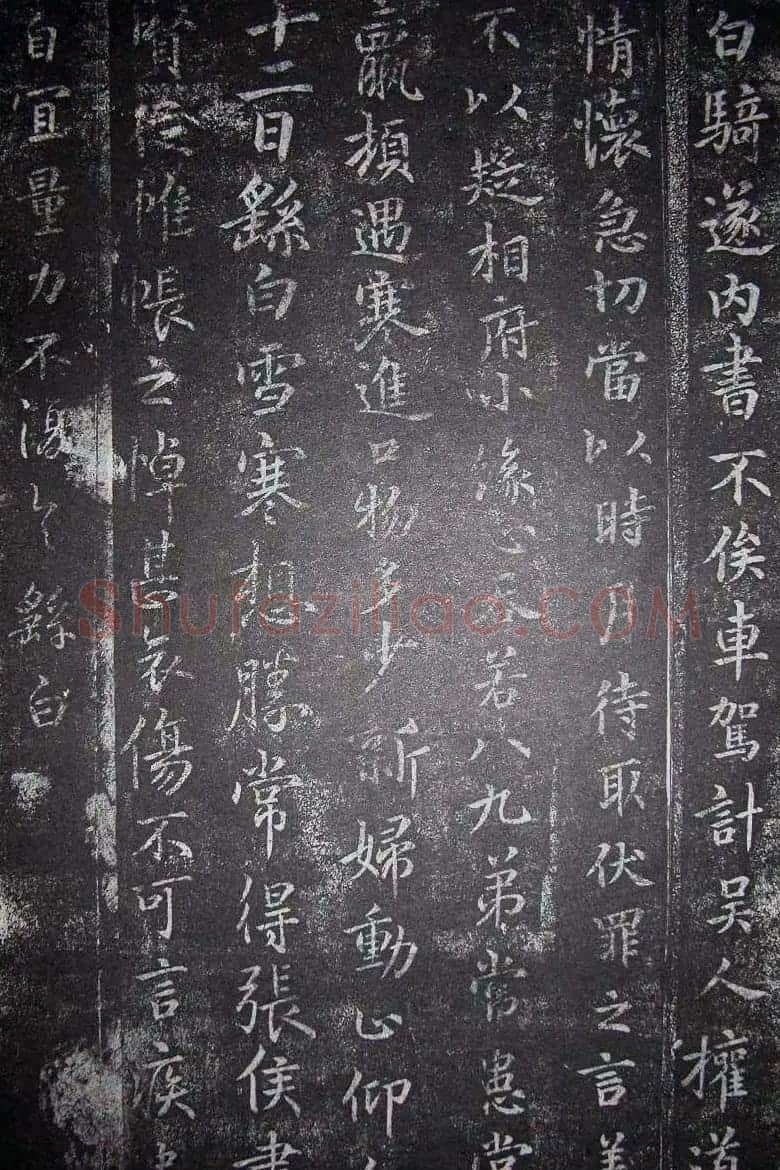 白騎遂內書不俟車駕計吳人權道
情懷急切當以時月待取伏罪之言
不以疑相府小緣心長若八九弟常患常
羸頓遇寒進口物多少新婦動止仰
十二日繇白雪寒想勝常得張侯書
賢從帷帳之悼甚哀傷不可言疾
自宜量力不復繇白
Shufaziliao.COM